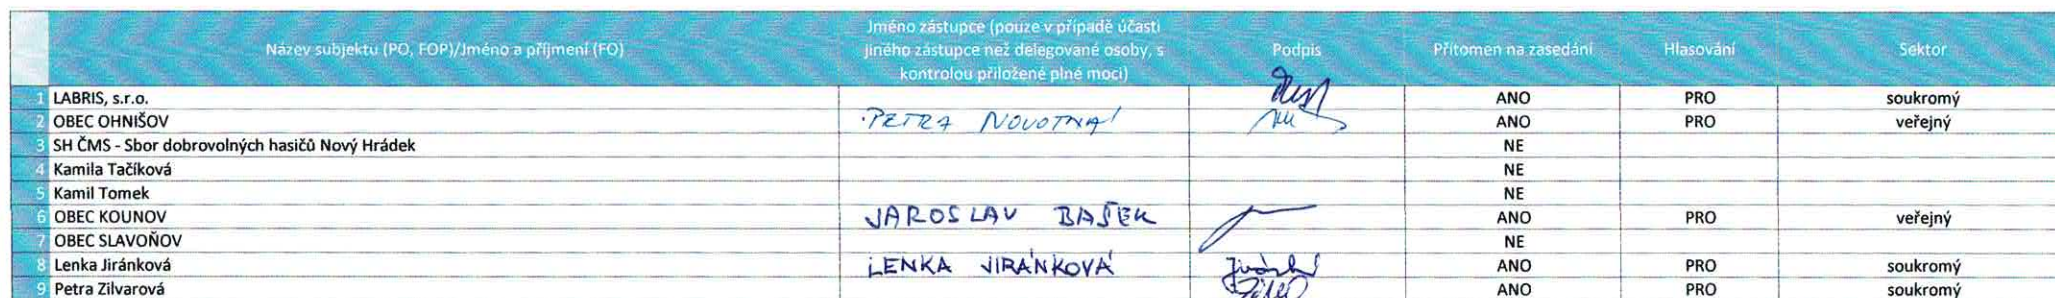 Název subjektu (PO, FOP)/Jméno a příjmení (FO) Jméno zástupce (pouze v případě účasti jiného zástupce než delegované osoby, s kontrolou přiložené plné moci) Podpis Přítomen na zasedání Hlasování Sektor
1 LABRIS, s.r.o. ANO PRO soukromý
2 OBEC OHNIŠOV PETRA NOVOTNÁ ANO PRO veřejný
3 SH ČMS - Sbor dobrovolných hasičů Nový Hrádek NE
4 Kamila Tačíková NE
5 Kamil Tomek NE
6 OBEC KOUNOV JAROSLAV BAŠEK ANO PRO veřejný
7 OBEC SLAVOŇOV NE
8 Lenka Jiránková LENKA JIRÁNKOVÁ ANO PRO soukromý
9 Petra Zilvarová ANO PRO soukromý